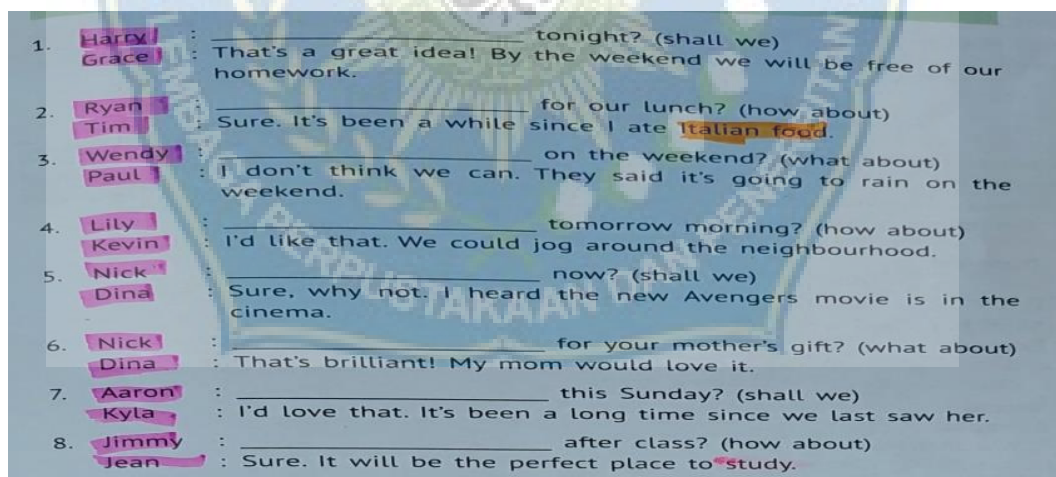 1. Harry : ____________________ tonight? (shall we)
Grace : That's a great idea! By the weekend we will be free of our
homework.
2. Ryan : ____________________ for our lunch? (how about)
Tim : Sure. It's been a while since I ate Italian food.
3. Wendy : ____________________ on the weekend? (what about)
Paul : I don't think we can. They said it's going to rain on the
weekend.
4. Lily : ____________________ tomorrow morning? (how about)
Kevin : I'd like that. We could jog around the neighbourhood.
5. Nick : ____________________ now? (shall we)
Dina : Sure, why not. I heard the new Avengers movie is in the
cinema.
6. Nick : ____________________ for your mother's gift? (what about)
Dina : That's brilliant! My mom would love it.
7. Aaron : ____________________ this Sunday? (shall we)
Kyla : I'd love that. It's been a long time since we last saw her.
8. Jimmy : ____________________ after class? (how about)
Jean : Sure. It will be the perfect place to study.
PERPUSTAKAAN DAN